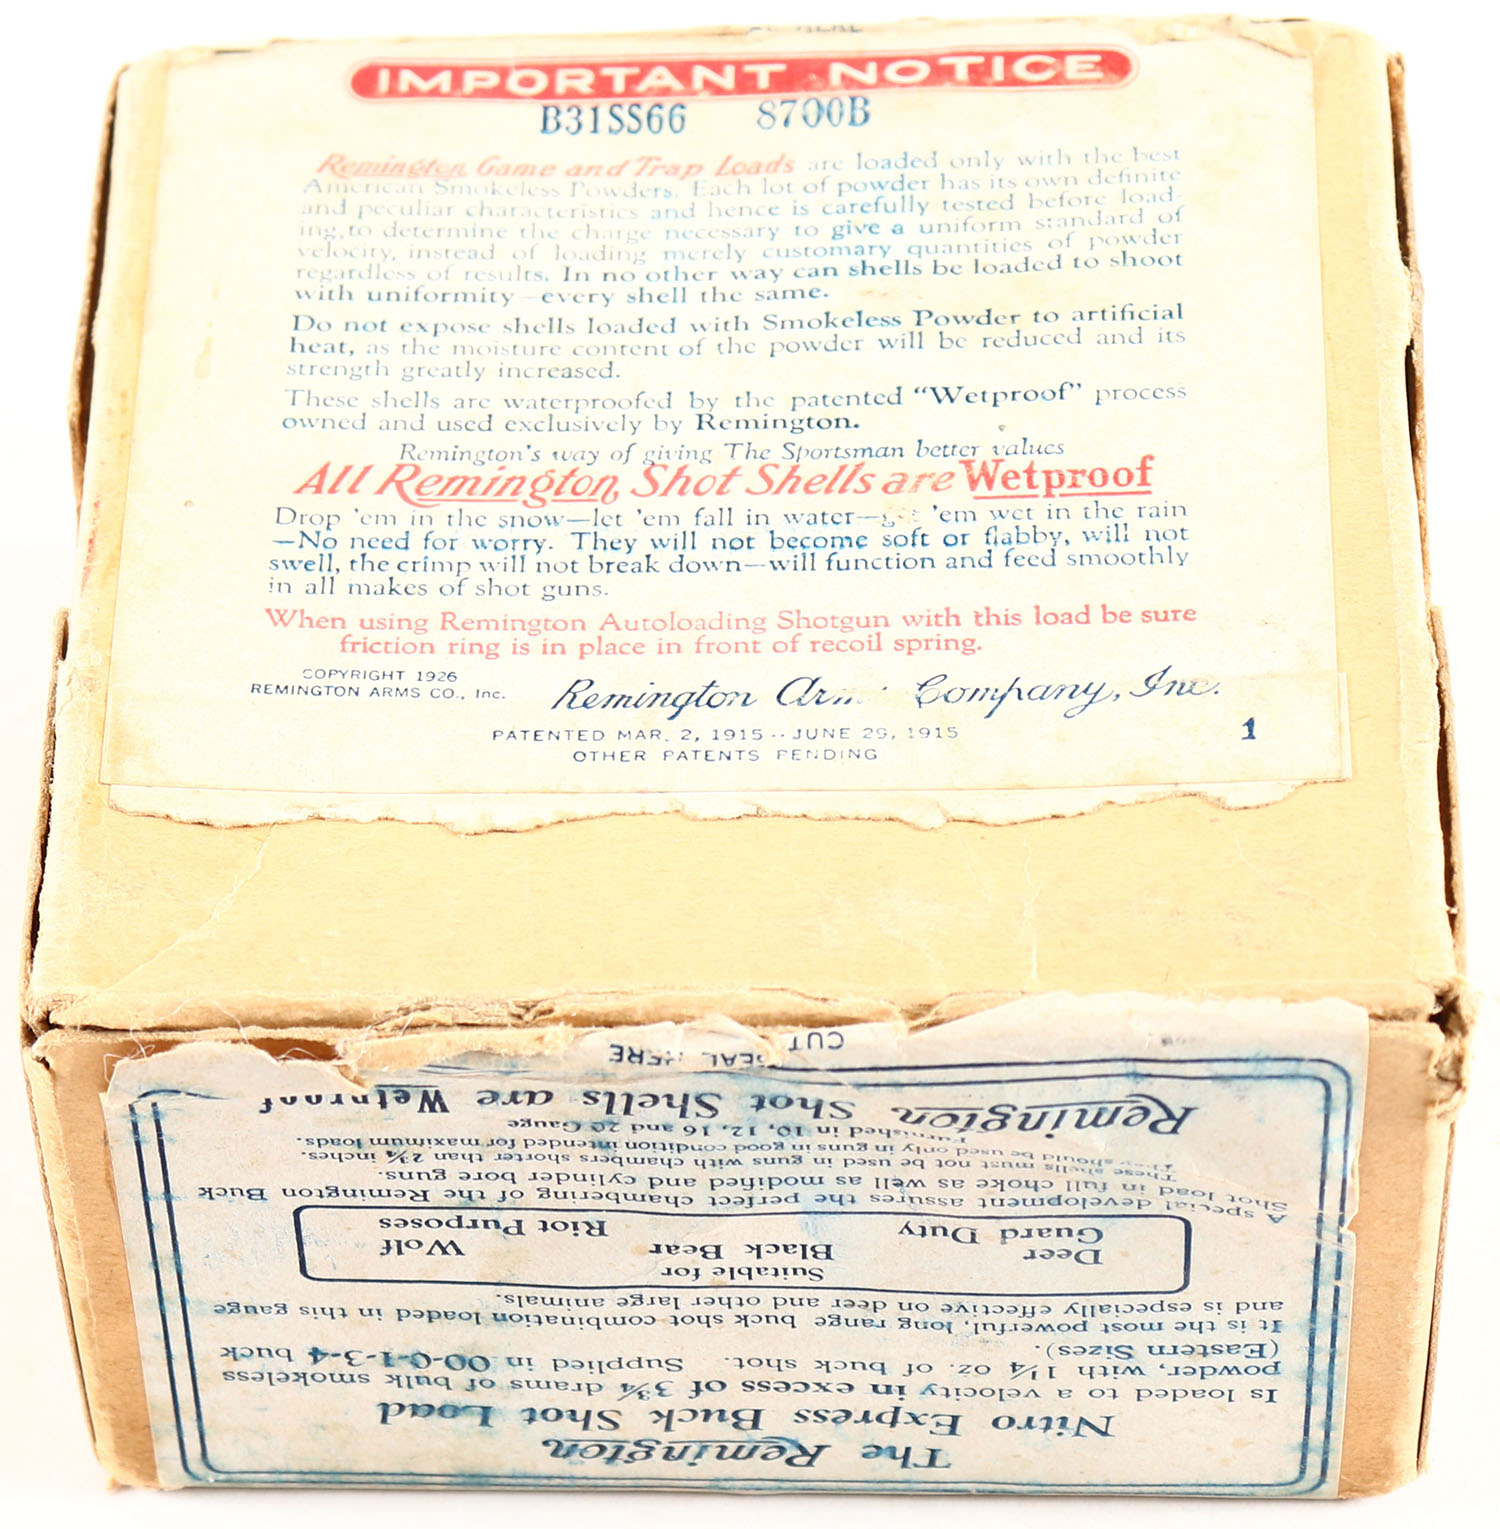 IMPORTANT NOTICE
B31SS66 8700B
Remington Game and Trap Loads are loaded only with the best
American Smokeless Powders. Each lot of powder has its own definite
and peculiar characteristics and hence is carefully tested before load-
ing, to determine the charge necessary to give a uniform standard of
velocity, instead of loading merely customary quantities of powder
regardless of results. In no other way can shells be loaded to shoot
with uniformity—every shell the same.
Do not expose shells loaded with Smokeless Powder to artificial
heat, as the moisture content of the powder will be reduced and its
strength greatly increased.
These shells are waterproofed by the patented "Wetproof" process
owned and used exclusively by Remington.
Remington's way of giving The Sportsman better values
All Remington Shot Shells are Wetproof
Drop 'em in the snow—let 'em fall in water—get 'em wet in the rain
—No need for worry. They will not become soft or flabby, will not
swell, the crimp will not break down—will function and feed smoothly
in all makes of shot guns.
When using Remington Autoloading Shotgun with this load be sure
friction ring is in place in front of recoil spring.
COPYRIGHT 1926
REMINGTON ARMS CO., Inc.
Remington Arms Company, Inc.
PATENTED MAR. 2, 1915 -- JUNE 29, 1915
OTHER PATENTS PENDING
1
The Remington
Nitro Express Buck Shot Load
Is loaded to a velocity in excess of 3¾ drams of bulk smokeless
powder, with 1¼ oz. of buck shot. Supplied in 00-0-1-3-4 buck
(Eastern Sizes).
It is the most powerful, long range buck shot combination loaded in this gauge
and is and especially effective on deer and other large animals.
Suitable for
Deer Black Bear Wolf
Guard Duty Riot Purposes
A special development assures the perfect chambering of the Remington Buck
Shot load in full choke as well as modified and cylinder bore guns.
These shells must not be used in guns with chambers shorter than 2¾ inches.
They should be used only in guns in good condition intended for maximum loads.
Furnished in 10, 12, 16 and 20 Gauge
Remington Shot Shells are Wetproof
CUT SEAL HERE